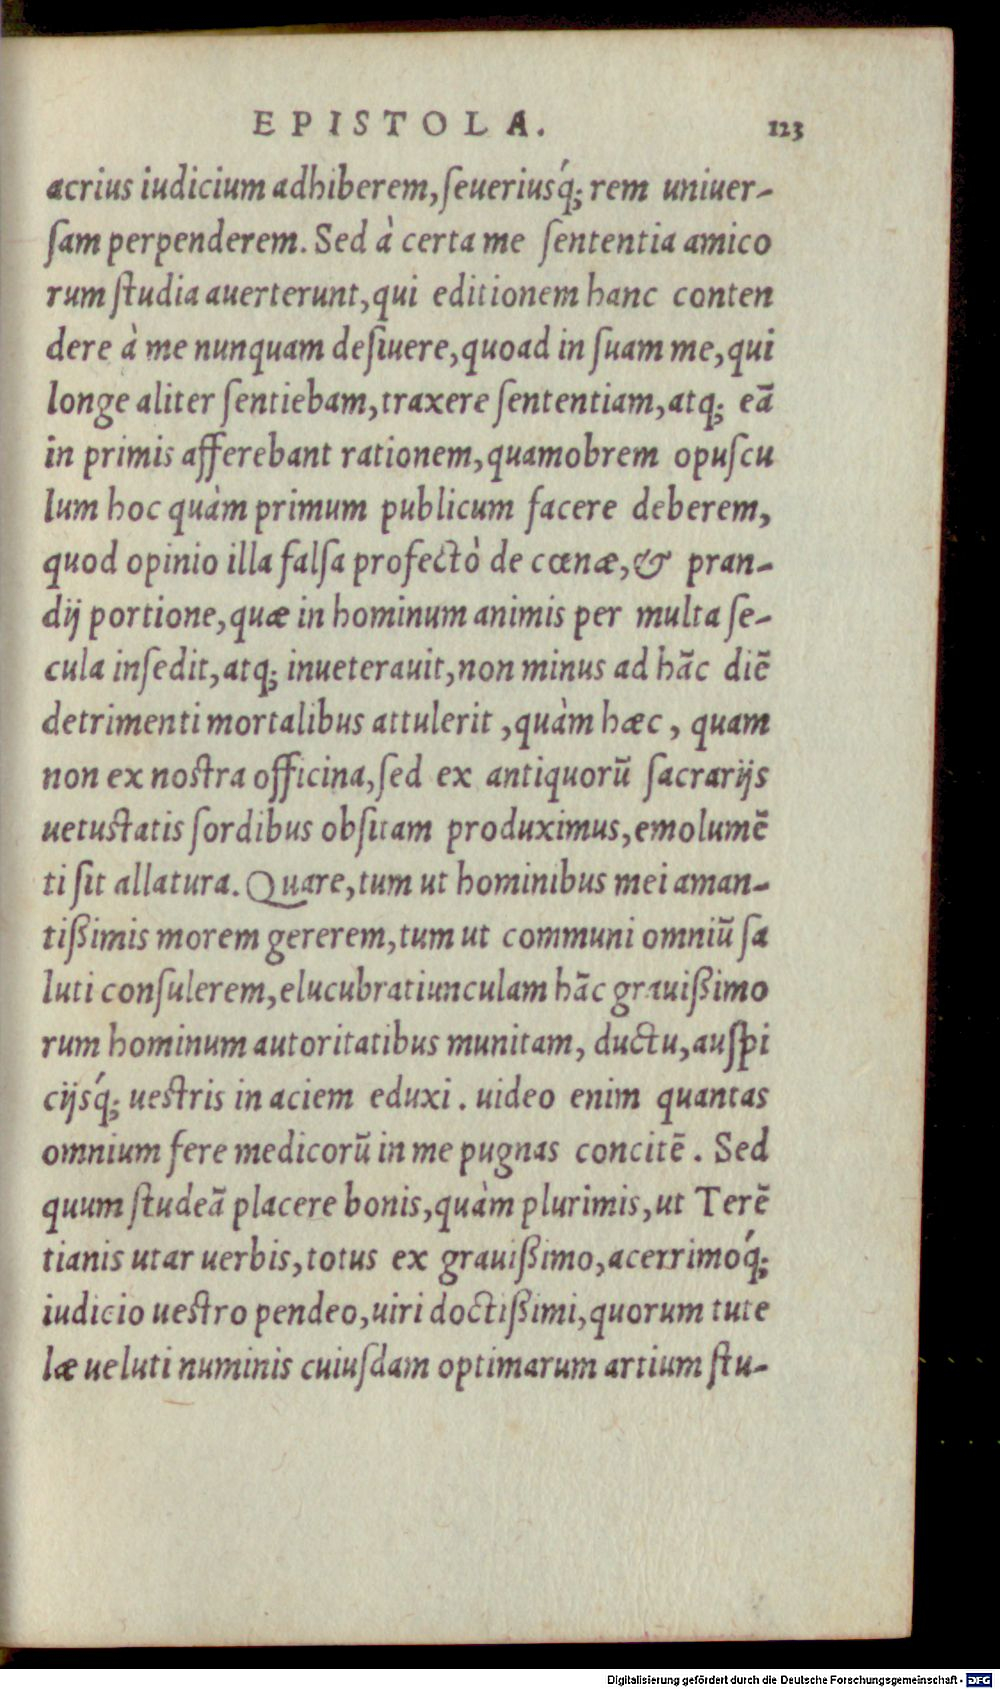 EPISTOLA. 123
acrius iudicium adhiberem, ſeueriusq́; rem uniuer-
ſam perpenderem. Sed à certa me ſententia amico
rum ſtudia auerterunt, qui editionem hanc conten
dere à me nunquam deſiuere, quoad in ſuam me, qui
longe aliter ſentiebam, traxere ſententiam, atq; eã
in primis afferebant rationem, quamobrem opuſcu
lum hoc quàm primum publicum facere deberem,
quod opinio illa falſa profectò de cœnæ, & pran-
dij portione, quæ in hominum animis per multa ſe-
cula inſedit, atq; inueterauit, non minus ad hãc diẽ
detrimenti mortalibus attulerit, quàm hæc, quam
non ex noſtra officina, ſed ex antiquorũ ſacrarijs
uetuſtatis ſordibus obſitam produximus, emolumẽ
ti ſit allatura. Quare, tum ut hominibus mei aman-
tißimis morem gererem, tum ut communi omniũ ſa
luti conſulerem, elucubratiunculam hãc grauißimo
rum hominum autoritatibus munitam, ductu, auſpi
cijsq́; ueſtris in aciem eduxi. uideo enim quantas
omnium fere medicorũ in me pugnas concitẽ. Sed
quum ſtudeã placere bonis, quàm plurimis, ut Terẽ
tianis utar uerbis, totus ex grauißimo, acerrimoq́;
iudicio ueſtro pendeo, uiri doctißimi, quorum tute
læ ueluti numinis cuiuſdam optimarum artium ſtu-
Digitalisierung gefördert durch die Deutsche Forschungsgemeinschaft - DFG